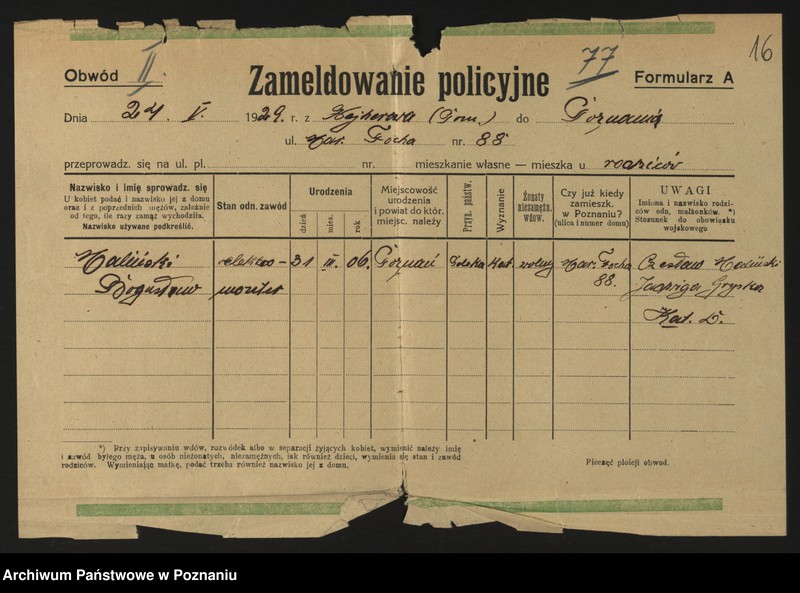 16
Obwód II.
Zameldowanie policyjne
77
Formularz A
Dnia 24. V. 1929. r. z Wejherowa (Pom.) do Poznania
ul. Mar. Focha nr. 88
przeprowadz. się na ul. pl. nr. mieszkanie własne — mieszka u rodziców
Nazwisko i imię sprowadz. się
U kobiet podać i nazwisko jej z domu
oraz i z poprzednich mężów, zależnie
od tego, ile razy zamąż wychodziła.
Nazwisko używane podkreślić.
Stan odn. zawód
Urodzenia
dzień
mies.
rok
Miejscowość
urodzenia
i powiat do któr.
miejsc. należy
Przyn. państw.
Wyznanie
Żonaty
niezamężn.
wdów.
Czy już kiedy
zamieszk.
w Poznaniu?
(ulica i numer domu)
UWAGI
Imiona i nazwisko rodzi-
ców odn. małżonków. *)
Stosunek do obowiązku
wojskowego
Maliński elektro- 31 III. 06. Poznań Polska kat. wolny Mar. Focha Czesław Maliński
Bogusław monter 88. Jadwiga
Kat. D.
*) Przy zapisywaniu wdów, rozwódek albo w separacji żyjących kobiet, wymienić należy imię
i zawód byłego męża, u osób nieżonatych, niezamężnych, jak również dzieci, wymienia się stan i zawód
rodziców. Wymieniając matkę, podać trzeba również nazwisko jej z domu.
Pieczęć ploicji obwod.
Archiwum Państwowe w Poznaniu